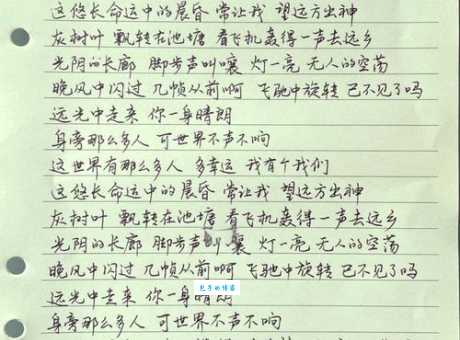 这悠长命运中的晨昏 常让我 望远方出神
灰树叶 飘转在池塘 看飞机轰得一声去远乡
光阴的长廊 脚步声叫嚷 灯一亮 无人的空荡
晚风中闪过 几帧从前啊 飞驰中旋转 已不见了吗
远光中走来 你一身晴朗
身旁那么多人 可世界不声不响
这世界有那么多人 多幸运 我有个我们
这悠长命运中的晨昏 常让我 望远方出神
灰树叶 飘转在池塘 看飞机轰得一声去远乡
光阴的长廊 脚步声叫嚷 灯一亮 无人的空荡
晚风中闪过 几帧从前啊 飞驰中旋转 已不见了吗
远光中走来 你一身晴朗
身旁那么多人 可世界不声不响